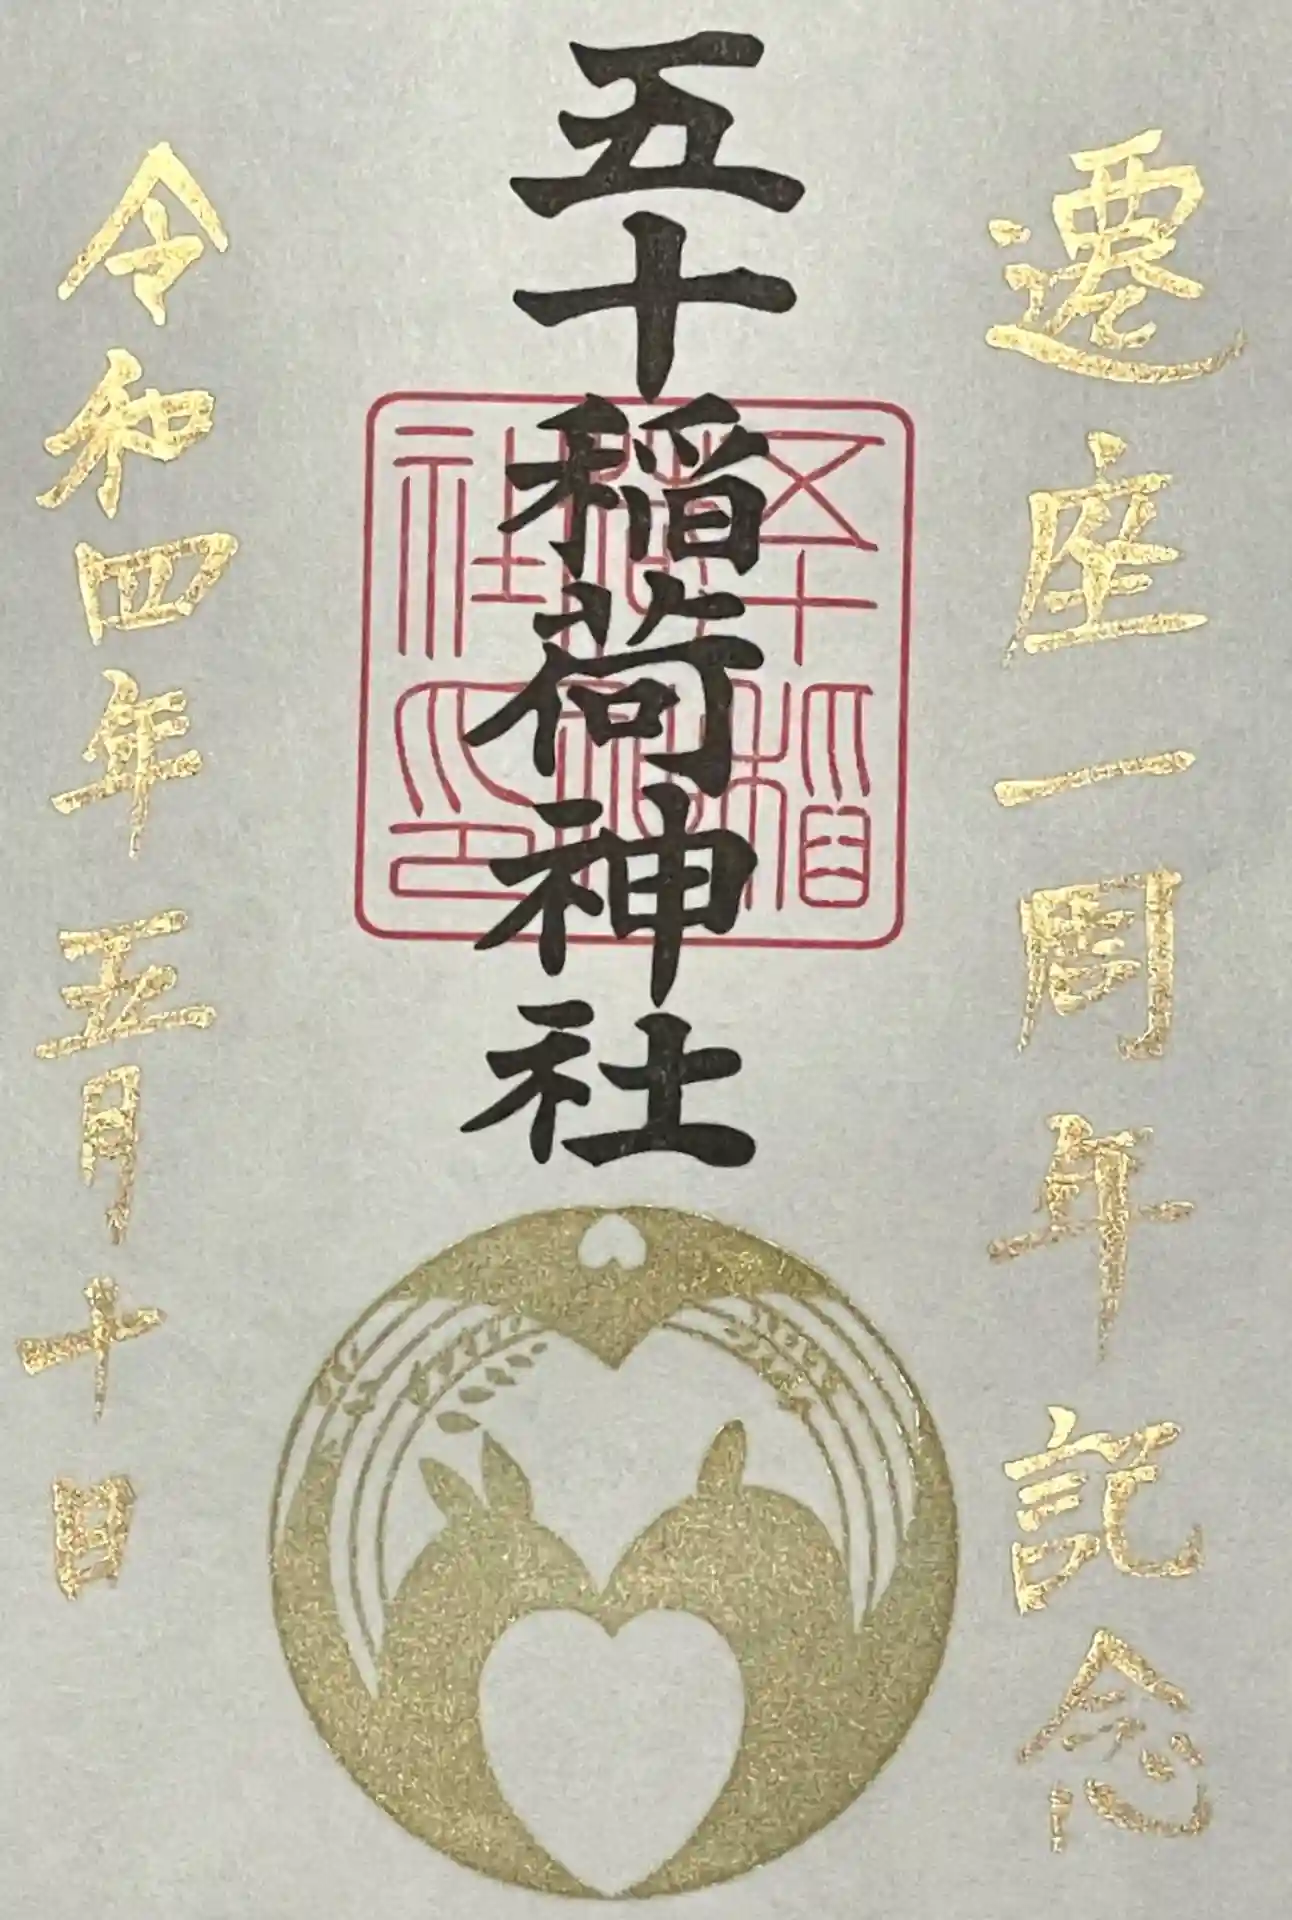 遷座一周年記念
五十稲荷神社
五十稲荷神社印
令和四年五月十日